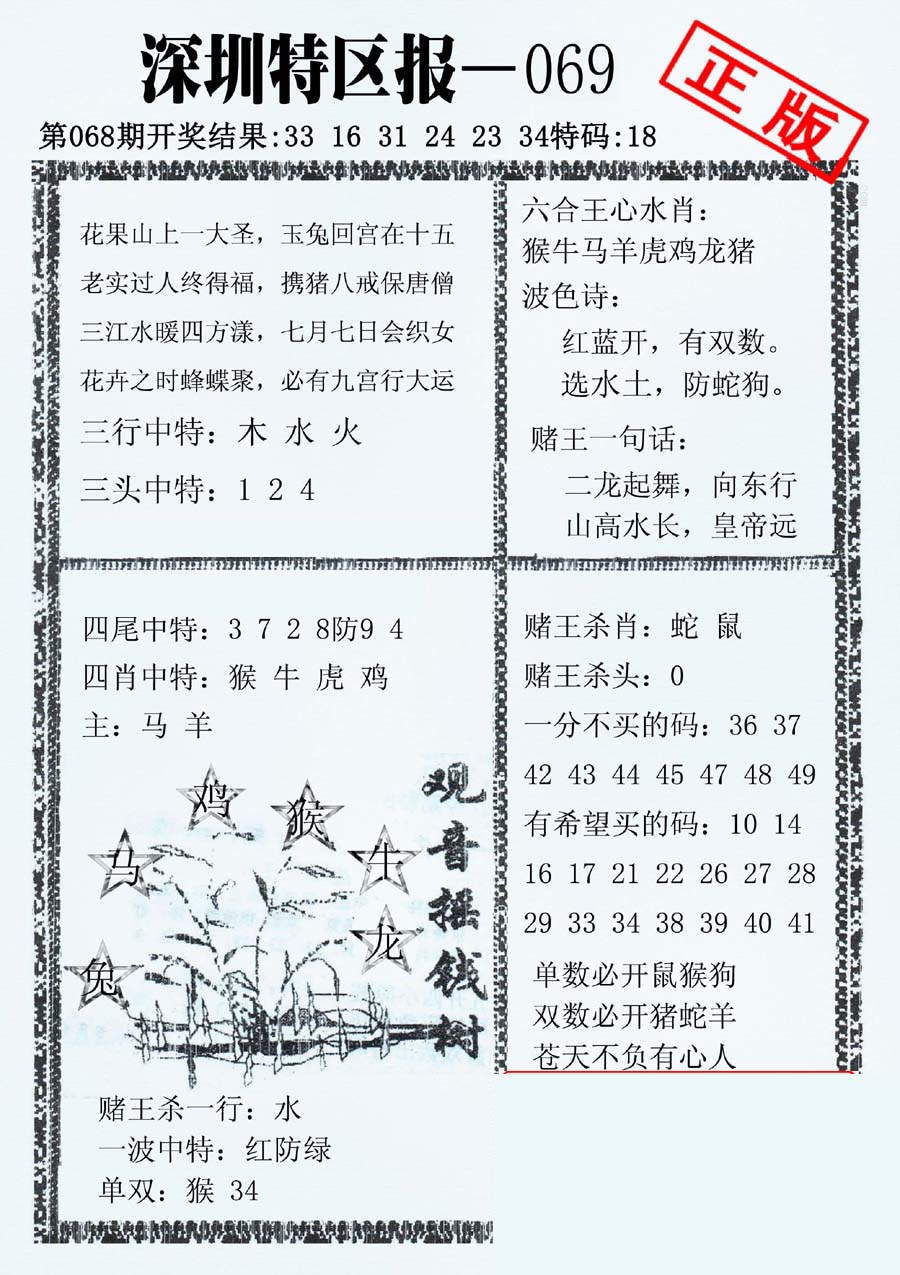 深圳特区报—069
正版
第068期开奖结果:33 16 31 24 23 34特码:18
花果山上一大圣，玉兔回宫在十五
老实过人终得福，携猪八戒保唐僧
三江水暖四方漾，七月七日会织女
花卉之时蜂蝶聚，必有九宫行大运
三行中特：木 水 火
三头中特：1 2 4
六合王心水肖：
猴牛马羊虎鸡龙猪
波色诗：
红蓝开，有双数。
选水土，防蛇狗。
赌王一句话：
二龙起舞，向东行
山高水长，皇帝远
四尾中特：3 7 2 8防9 4
四肖中特：猴 牛 虎 鸡
主：马 羊
鸡
猴
马
牛
龙
兔
观音摇钱树
赌王杀一行：水
一波中特：红防绿
单双：猴 34
赌王杀肖：蛇 鼠
赌王杀头：0
一分不买的码：36 37
42 43 44 45 47 48 49
有希望买的码：10 14
16 17 21 22 26 27 28
29 33 34 38 39 40 41
单数必开鼠猴狗
双数必开猪蛇羊
苍天不负有心人